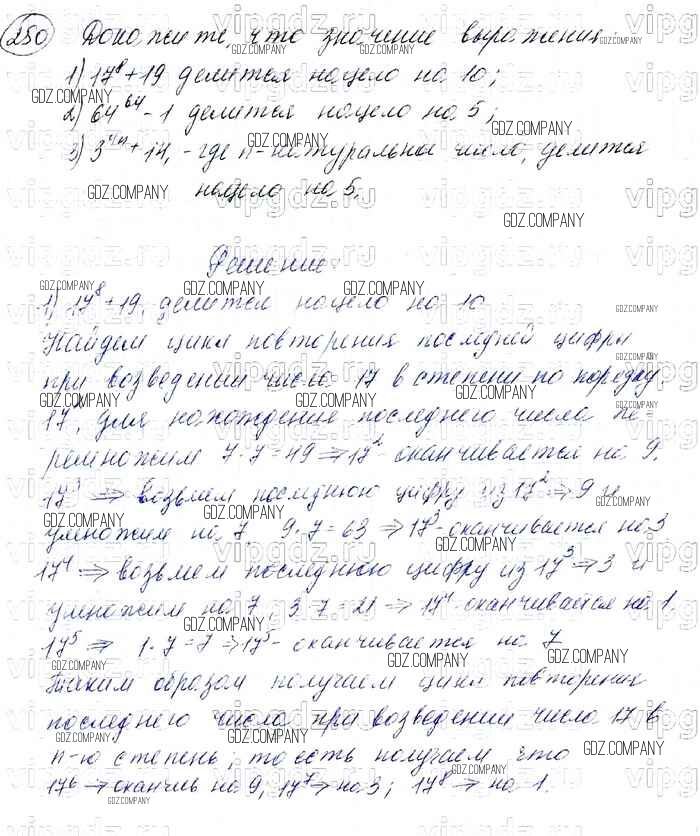 250 Докажите, что значение выражения:
1) 17⁸ + 19 делится нацело на 10;
2) 64⁶⁴ - 1 делится нацело на 5;
3) 3⁴ⁿ + 14, - где n - натуральны число, делится
нацело на 5.
Решение
1) 17⁸ + 19, делится нацело на 10
Найдем цикл повторения последней цифры
при возведении числа 17 в степени по порядку.
17², для нахождения последнего числа пе-
ремножим 7·7 = 49 ⇒ 17² - оканчивается на 9.
17³ ⇒ возьмем последнюю цифру из 17² ⇒ 9 и
умножим на 7 9·7 = 63 ⇒ 17³ - оканчивается на 3
17⁴ ⇒ возьмем последнюю цифру из 17³ ⇒ 3 и
умножим на 7, 3·7 = 21 ⇒ 17⁴ - оканчивается на 1.
17⁵ ⇒ 1·7 = 7 ⇒ 17⁵ - оканчивается на 7
Таким образом получаем цикл повторения
последнего числа при возведении числа 17 в
n-ю степень, то есть получаем что
17⁶ ⇒ оканчив на 9, 17⁷ ⇒ на 3; 17⁸ ⇒ на 1.
GDZ.COMPANY
vipgdz.ru